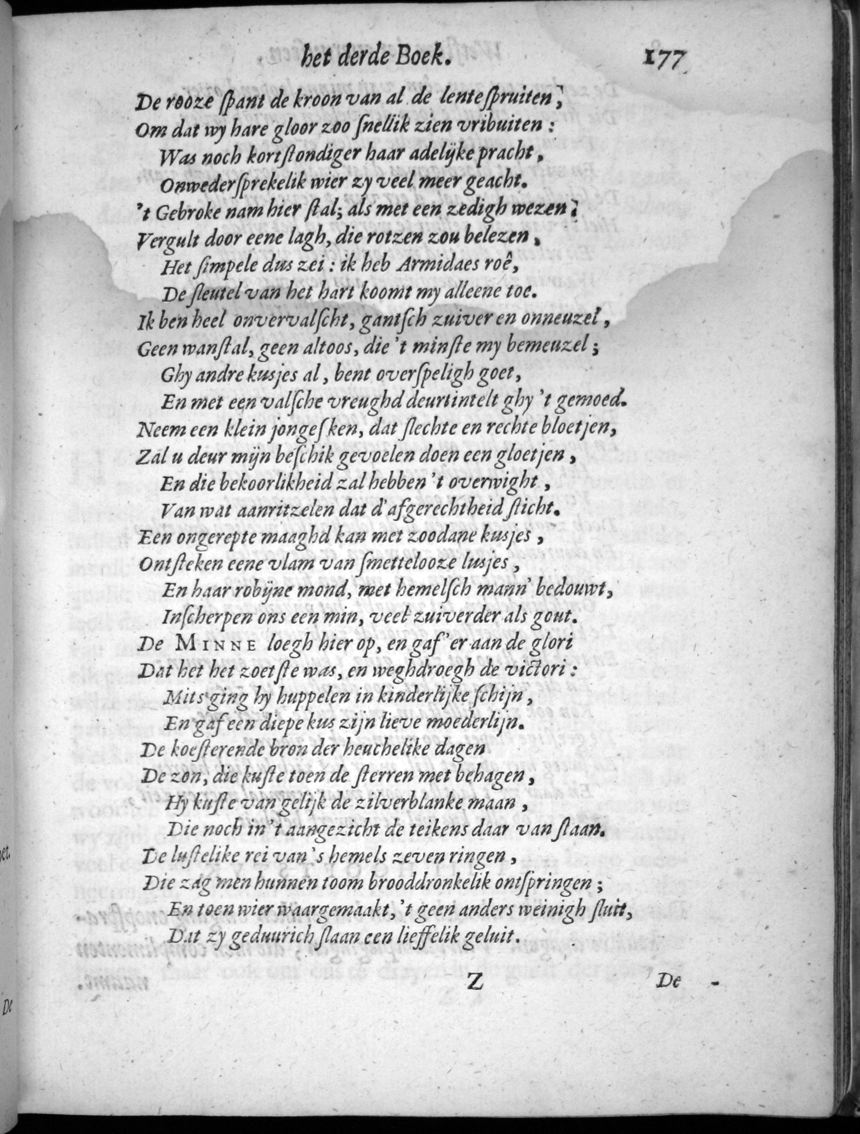 het derde Boek. 177
De rooze ſpant de kroon van al de lenteſpruiten,
Om dat wy hare gloor zoo ſnellik zien vribuiten :
Was noch kortſtondiger haar adelijke pracht,
Onwederſprekelik wier zy veel meer geacht.
't Gebroke nam hier ſtal; als met een zedigh wezen;
Vergult door eene lagh, die rotzen zou belezen,
Het ſimpele dus zei : ik heb Armidaes roê,
De ſleutel van het hart koomt my alleene toe.
Ik ben heel onvervalſcht, gantſch zuiver en onneuzel,
Geen wanſtal, geen altoos, die 't minſte my bemeuzel;
Ghy andre kusjes al, bent overſpeligh goet,
En met een valſche vreughd deurtintelt ghy 't gemoed.
Neem een klein jongeſken, dat ſlechte en rechte bloetjen,
Zal u deur mijn beſchik gevoelen doen een gloetjen,
En die bekoorlikheid zal hebben 't overwight,
Van wat aanritzelen dat d'afgerechtheid ſticht.
Een ongerepte maaghd kan met zoodane kusjes,
Ontſteken eene vlam van ſmettelooze lusjes,
En haar robijne mond, met hemelſch mann' bedouwt,
Inſcherpen ons een min, veel zuiverder als gout.
De MINNE loegh hier op, en gaf'er aan de glori
Dat het het zoetſte was, en weghdroegh de victori :
Mits ging hy huppelen in kinderlijke ſchijn,
En gaf een diepe kus zijn lieve moederlijn.
De koeſterende bron der heuchelike dagen
De zon, die kuſte toen de ſterren met behagen,
Hy kuſte van gelijk de zilverblanke maan,
Die noch in't aangezicht de teikens daar van ſtaan.
De luſtelike rei van 's hemels zeven ringen,
Die zag men hunnen toom brooddronkelik ontſpringen;
En toen wier waargemaakt, 't geen anders weinigh ſluit,
Dat zy geduurich ſlaan een lieffelik geluit.
Z De